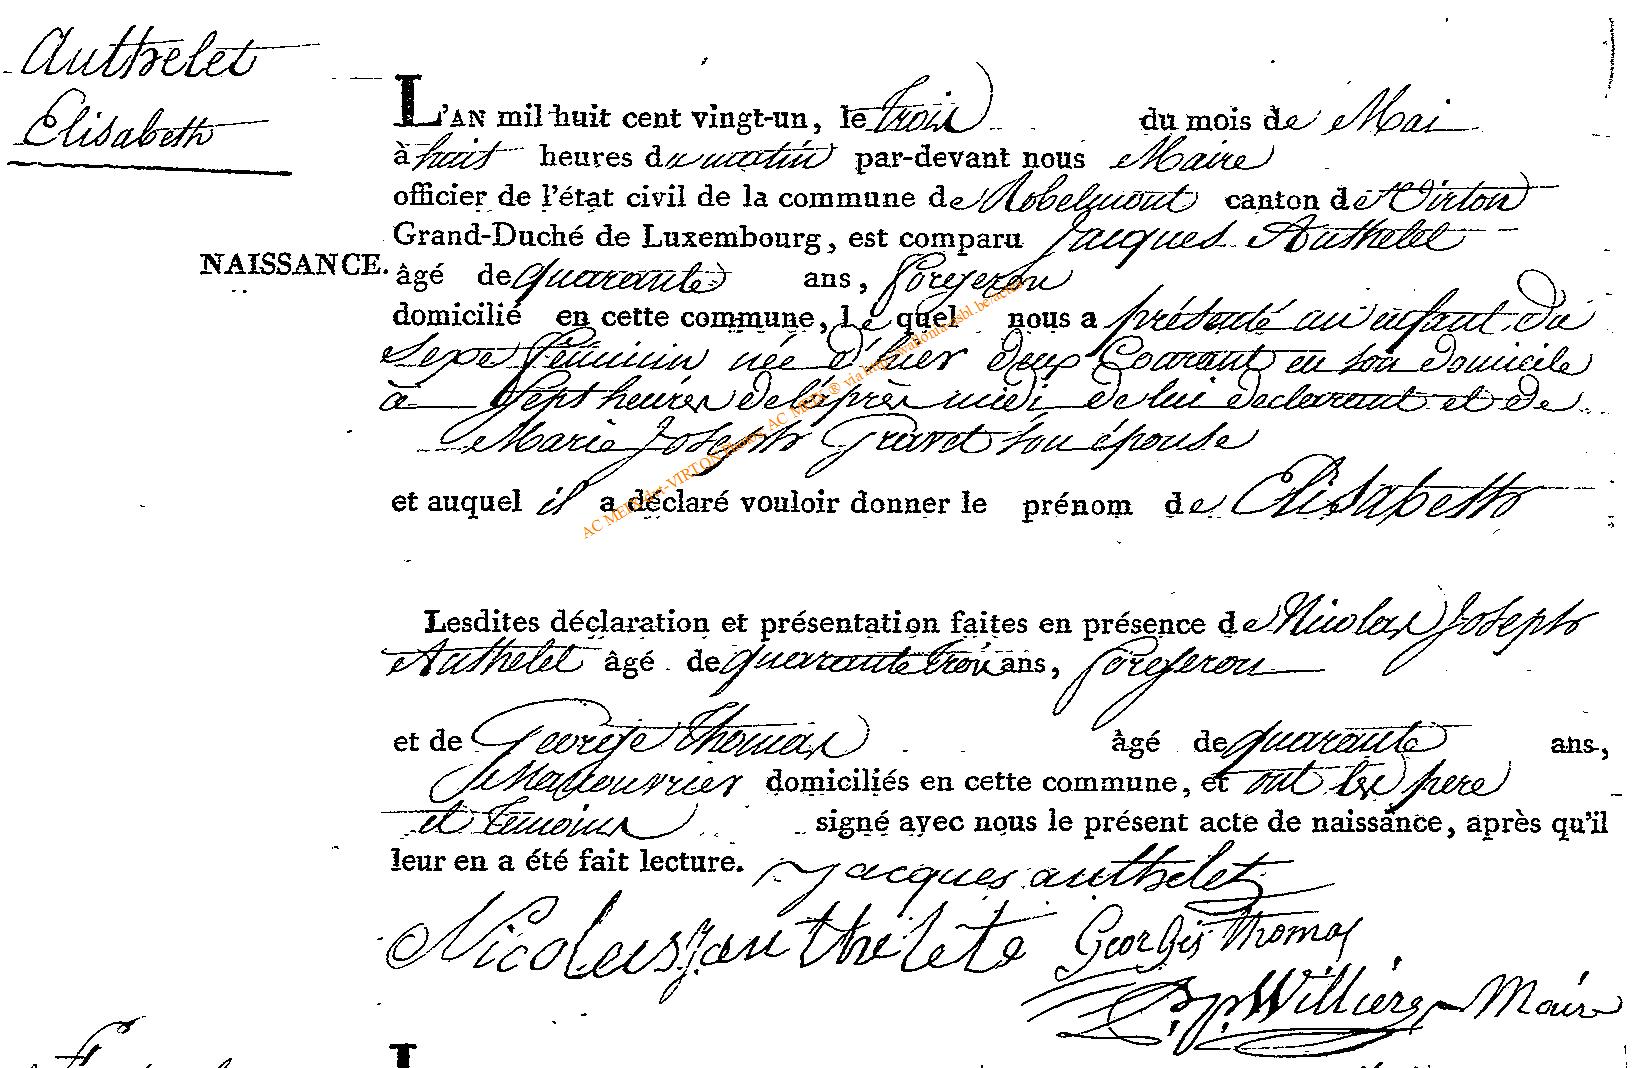 Authelet
Elisabeth
NAISSANCE.
L'AN mil huit cent vingt-un, le trois du mois de Mai
à huit heures du matin par-devant nous Maire
officier de l'état civil de la commune de Robelmont canton de Virton
Grand-Duché de Luxembourg, est comparu Jacques Authelet
âgé de quarante ans, forgeron
domicilié en cette commune, le quel nous a présenté un enfant du
Sexe féminin née d'hier deux Courant en son domicile
à Sept heures de l'après midi de lui declarant et de
Marie Joseph Gravet son épouse
et auquel il a déclaré vouloir donner le prénom de Elisabeth
Lesdites déclaration et présentation faites en présence de Nicolas Joseph
Authelet âgé de quarante trois ans, forgeron
et de George Thomas âgé de quarante ans,
Manouvrier domiciliés en cette commune, et ont les pere
et temoins signé avec nous le présent acte de naissance, après qu'il
leur en a été fait lecture. Jacques authelet
Nicolas j authelete Georges Thomas
Williers Maire